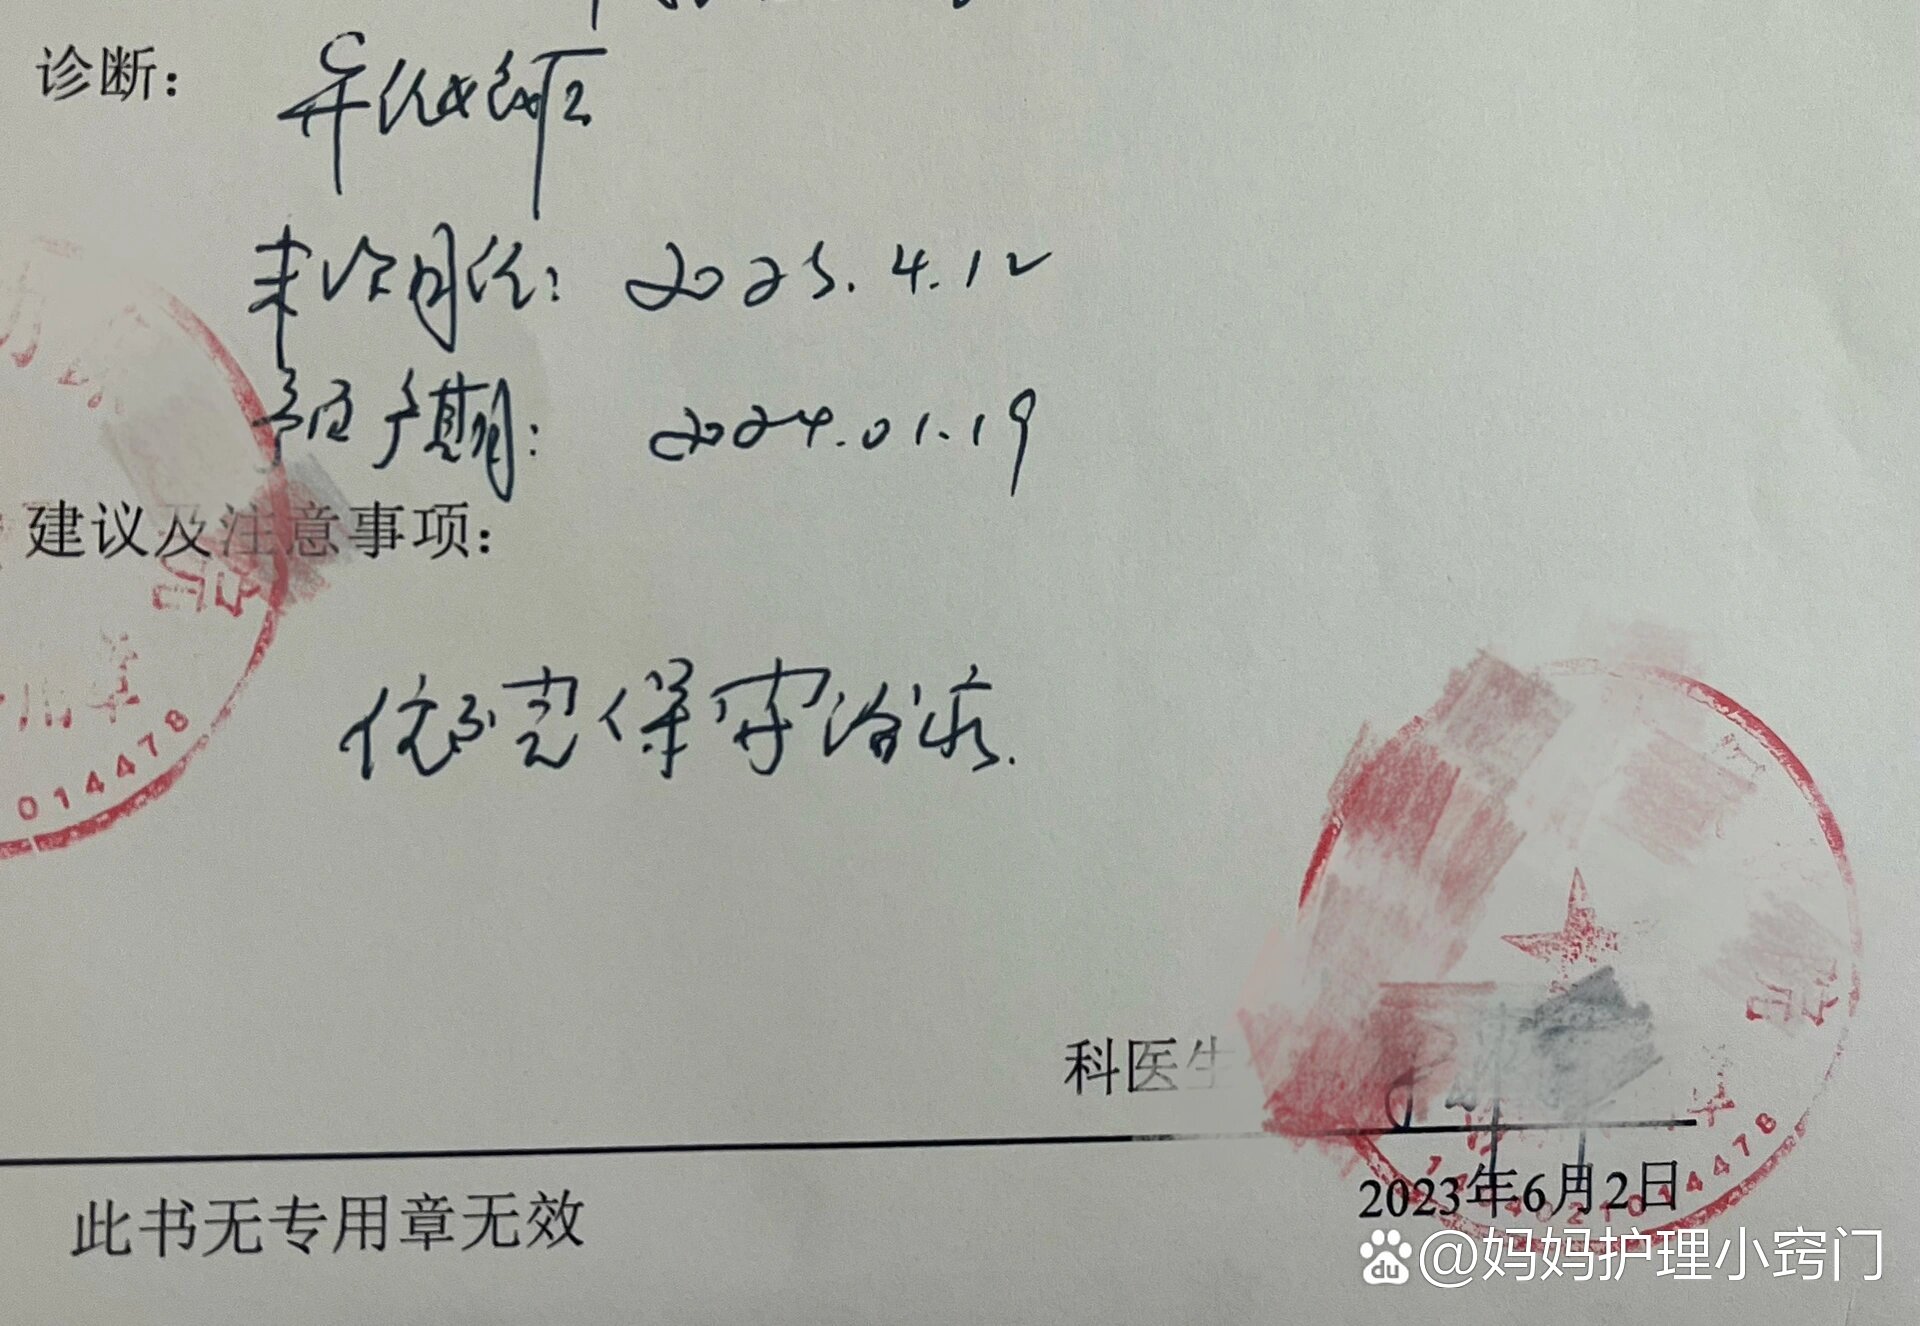 诊断：
末次月经：2023.4.12
预产期：2024.01.19
建议及注意事项：
保守治疗.
科医生
2023年6月2日
此书无专用章无效
014478
014478
@妈妈护理小窍门